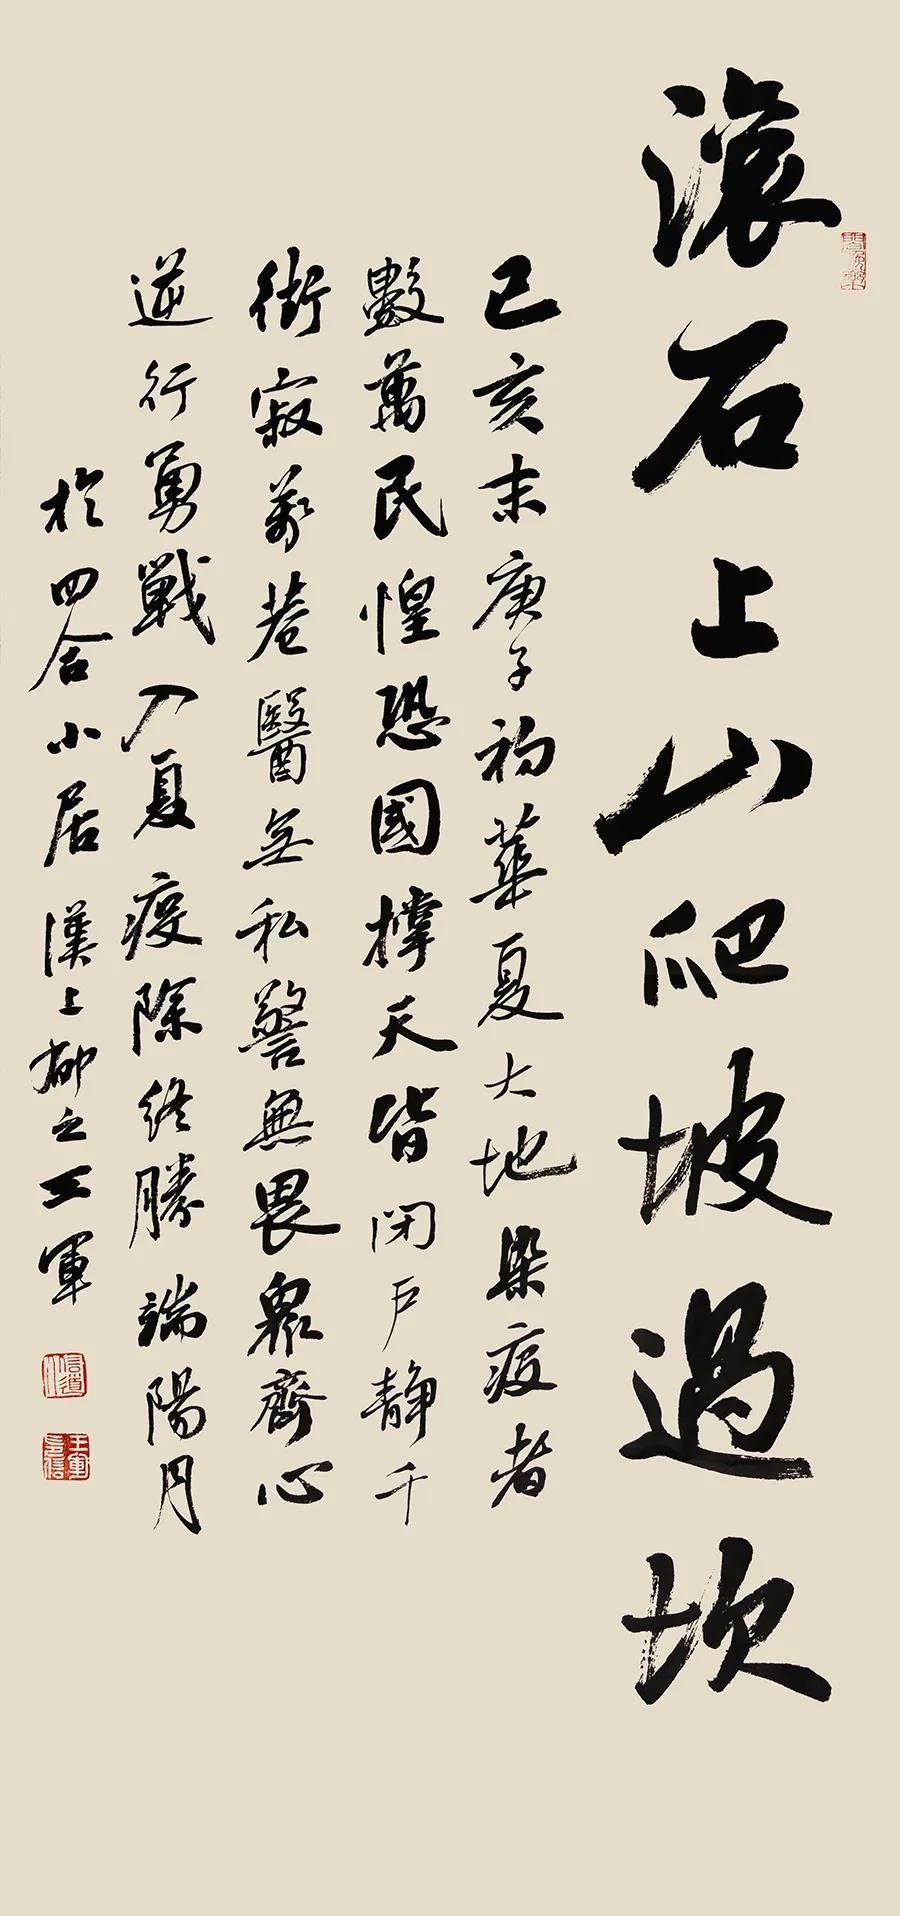 滾石上山爬坡過坎
己亥末庚子初華夏大地染疫者
數萬民惶恐國撑天皆閉户静千
街寂萬巷醫無私警無畏衆齊心
逆行勇戰入夏疫除終勝端陽月
於四合小居漢上柳之王軍